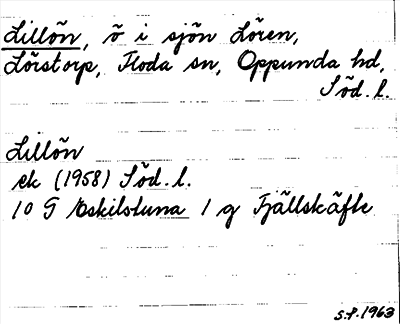 Lillön, ö i sjön Lören,
Lörstorp, Floda sn, Oppunda hd,
Söd. l.
Lillön
ek (1958) Söd. l.
10 G Eskilstuna 1 g Fjällskäfte
S.P. 1963